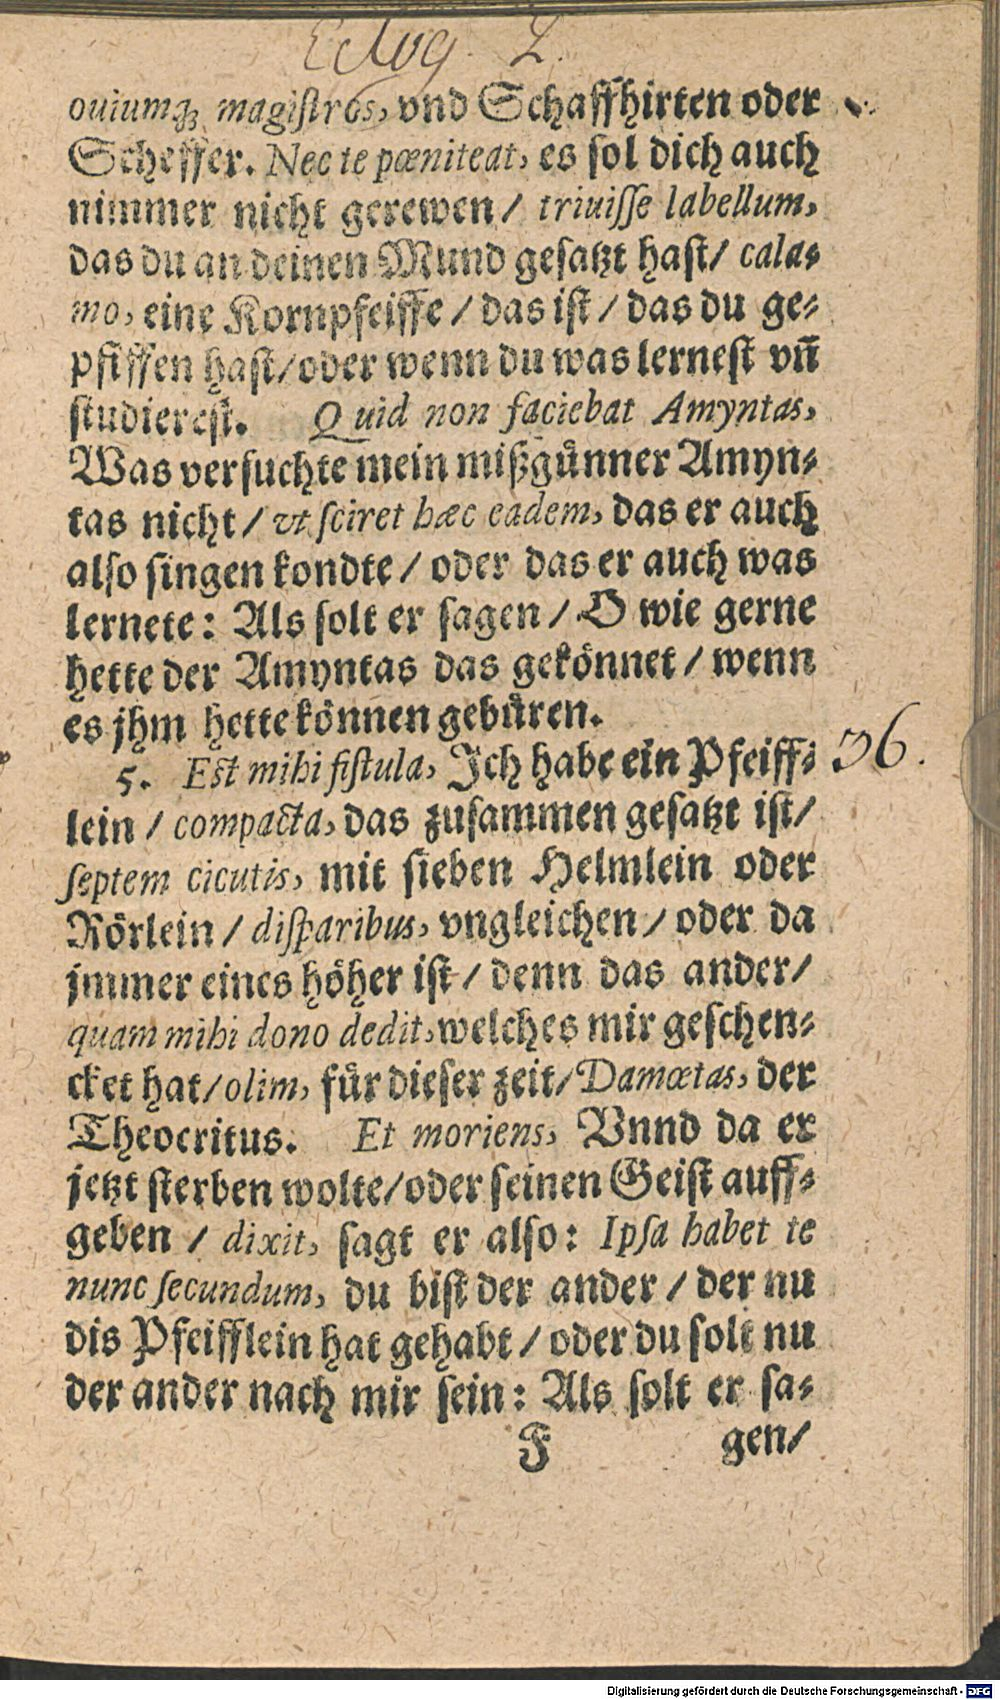 Eclog. 2.
ouiumq́ꝫ magiſtros, vnd Schaffhirten oder
Scheffer. Nec te pœniteat, es ſol dich auch
nimmer nicht gerewen / triuiſſe labellum,
das du an deinen Mund geſatzt haſt / cala-
mo, eine Kornpfeiffe / das iſt / das du ge-
pfiffen haſt / oder wenn du was lerneſt vn̄
ſtudiereſt. Quid non faciebat Amyntas,
Was verſuchte mein mißguͤnner Amyn-
tas nicht / vt ſciret hæc eadem, das er auch
alſo ſingen kondte / oder das er auch was
lernete: Als ſolt er ſagen / O wie gerne
hette der Amyntas das gekoͤnnet / wenn
es jhm hette koͤnnen gebuͤren.
5. Est mihi fiſtula, Ich habe ein Pfeiff-
36.
lein / compacta, das zuſammen geſatzt iſt /
ſeptem cicutis, mit ſieben Helmlein oder
Roͤrlein / diſparibus, vngleichen / oder da
jmmer eines hoͤher iſt / denn das ander /
quam mihi dono dedit, welches mir geſchen-
cket hat / olim, fuͤr dieſer zeit / Damœtas, der
Theocritus. Et moriens, Vnnd da er
jetzt ſterben wolte / oder ſeinen Geiſt auff-
geben / dixit, ſagt er alſo: Ipſa habet te
nunc ſecundum, du biſt der ander / der nu
dis Pfeifflein hat gehabt / oder du ſolt nu
der ander nach mir ſein: Als ſolt er ſa-
F gen /
Digitalisierung gefördert durch die Deutsche Forschungsgemeinschaft - DFG